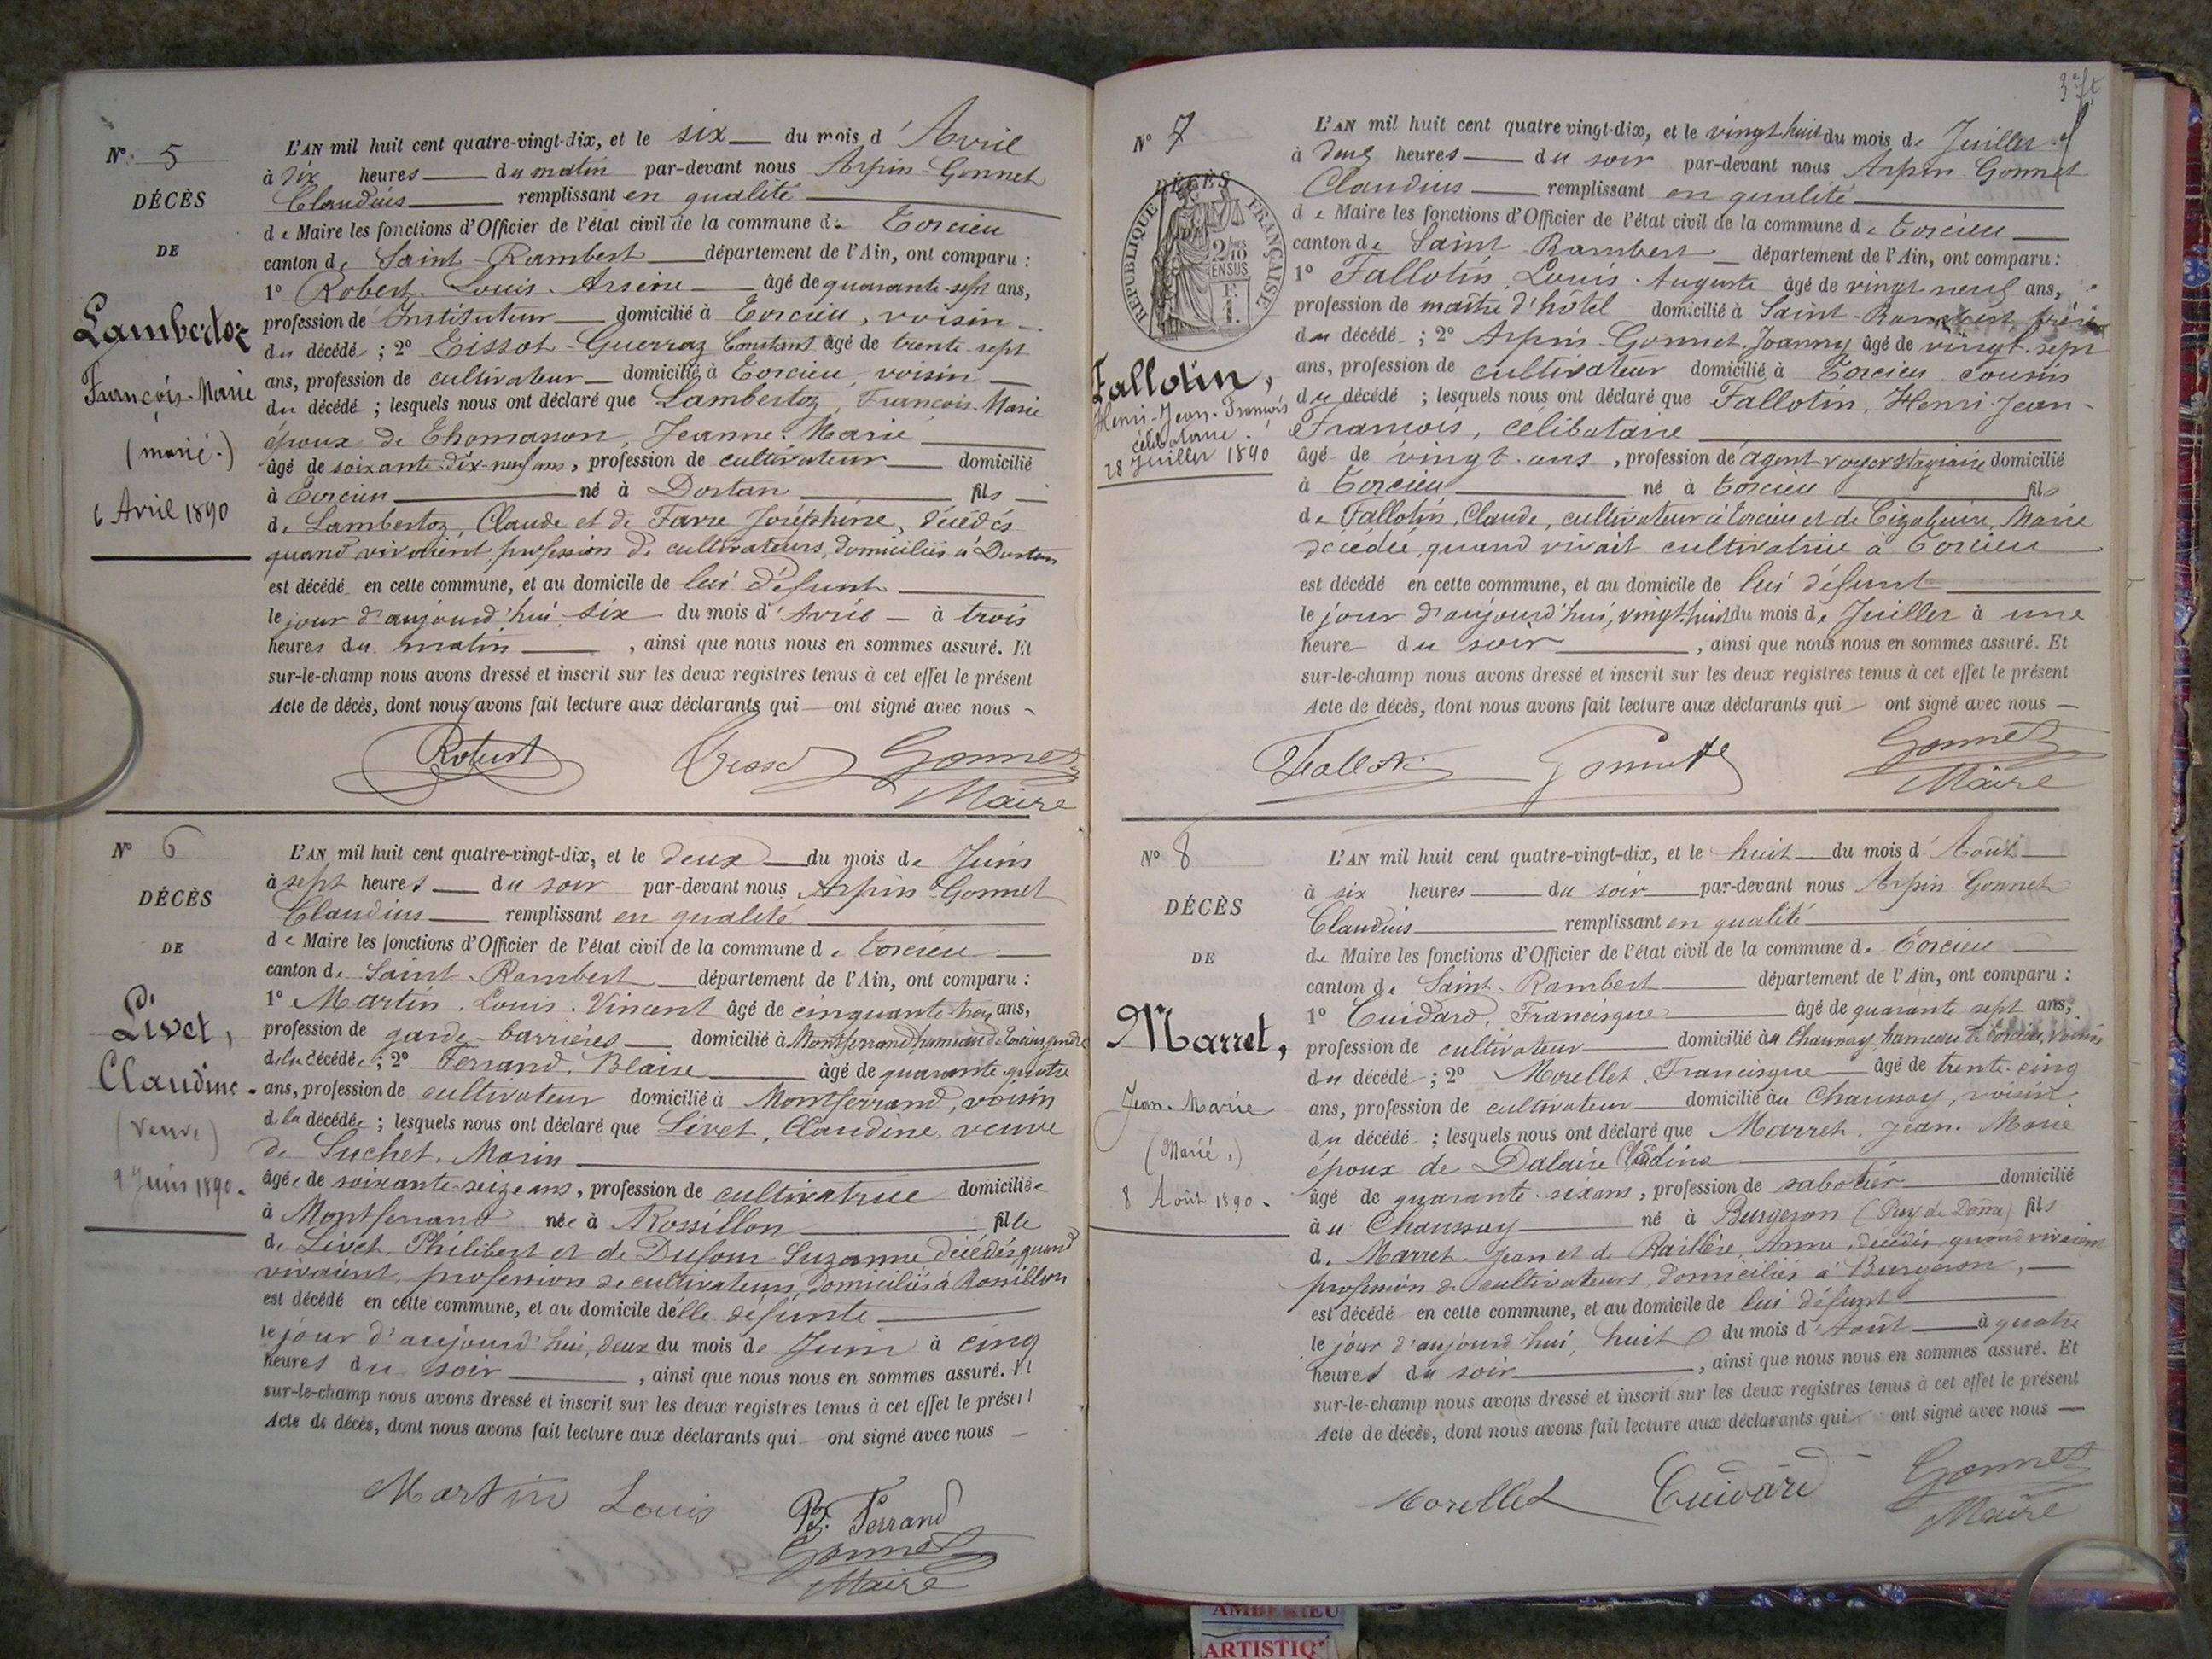 N° 5
DÉCÈS
DE
Lambertoz
François-Marie
(marié.)
6 Avril 1890
L'AN mil huit cent quatre-vingt-dix, et le six du mois d'Avril
à dix heures du matin par-devant nous Arpin-Gonnet
Claudius remplissant en qualité
de Maire les fonctions d'Officier de l'état civil de la commune de Torcieu
canton de Saint-Rambert département de l'Ain, ont comparu :
1° Robert. Louis. Arsène âgé de quarante-sept ans,
profession de Instituteur domicilié à Torcieu, voisin
du décédé ; 2° Tissot-Guerraz Constant âgé de trente-sept
ans, profession de cultivateur domicilié à Torcieu, voisin
du décédé ; lesquels nous ont déclaré que Lambertoz, François-Marie
époux de Thomasson, Jeanne-Marie
âgé de soixante-dix-neuf ans, profession de cultivateur domicilié
à Torcieu né à Dortan fils
de Lambertoz, Claude et de Favre Joséphine, décédés
quand vivaient profession de cultivateurs, domiciliés à Dortan
est décédé en cette commune, et au domicile de lui défunt
le jour d'aujourd'hui six du mois d'Avril à trois
heures du matin, ainsi que nous nous en sommes assuré. Et
sur-le-champ nous avons dressé et inscrit sur les deux registres tenus à cet effet le présent
Acte de décès, dont nous avons fait lecture aux déclarants qui ont signé avec nous
Robert Tissot Gonnet
Maire
N° 6
DÉCÈS
DE
Livet,
Claudine
(Veuve)
2 Juin 1890.
L'AN mil huit cent quatre-vingt-dix, et le deux du mois de Juin
à sept heures du soir par-devant nous Arpin-Gonnet
Claudius remplissant en qualité
de Maire les fonctions d'Officier de l'état civil de la commune de Torcieu
canton de Saint-Rambert département de l'Ain, ont comparu :
1° Martin. Louis. Vincent âgé de cinquante-trois ans,
profession de garde-barrières domicilié à Montferrand, hameau de Torcieu, gendre
de la décédée ; 2° Ferrand, Blaise âgé de quarante-quatre
ans, profession de cultivateur domicilié à Montferrand, voisin
de la décédée ; lesquels nous ont déclaré que Livet, Claudine, veuve
de Suchet. Marin
âgée de soixante-seize ans, profession de cultivatrice domiciliée
à Montferrand née à Rossillon fille
de Livet, Philibert et de Dufour Suzanne, décédés, quand
vivaient, profession de cultivateurs, domiciliés à Rossillon
est décédé en cette commune, et au domicile d'elle défunte
le jour d'aujourd'hui, deux du mois de Juin à cinq
heures du soir, ainsi que nous nous en sommes assuré. Et
sur-le-champ nous avons dressé et inscrit sur les deux registres tenus à cet effet le présent
Acte de décès, dont nous avons fait lecture aux déclarants qui ont signé avec nous
Martin Louis B. Ferrand
Gonnet
Maire
N° 7
DÉCÈS
RÉPUBLIQUE FRANÇAISE
2/10 EN SUS
F. 1.
Fallotin,
Henri-Jean-François
célibataire.
28 Juillet 1890
L'AN mil huit cent quatre vingt-dix, et le vingt huit du mois de Juillet
à deux heures du soir par-devant nous Arpin-Gonnet
Claudius remplissant en qualité
de Maire les fonctions d'Officier de l'état civil de la commune de Torcieu
canton de Saint-Rambert département de l'Ain, ont comparu :
1° Fallotin, Louis-Auguste âgé de vingt-neuf ans,
profession de maître d'hôtel domicilié à Saint-Rambert, frère
du décédé ; 2° Arpin-Gonnet, Joanny âgé de vingt-sept
ans, profession de cultivateur domicilié à Torcieu cousin
du décédé ; lesquels nous ont déclaré que Fallotin, Henri-Jean-
François, célibataire
âgé de vingt-ans, profession de agent-voyer stagiaire domicilié
à Torcieu né à Torcieu fils
de Fallotin, Claude, cultivateur à Torcieu et de Marie
décédée, quand vivait cultivatrice à Torcieu
est décédé en cette commune, et au domicile de lui défunt
le jour d'aujourd'hui, vingt-huit du mois de Juillet à une
heure du soir, ainsi que nous nous en sommes assuré. Et
sur-le-champ nous avons dressé et inscrit sur les deux registres tenus à cet effet le présent
Acte de décès, dont nous avons fait lecture aux déclarants qui ont signé avec nous
Fallotin Gonnet
Maire
N° 8
DÉCÈS
DE
Marret,
Jean-Marie
(Marié,)
8 Août 1890.
L'AN mil huit cent quatre-vingt-dix, et le huit du mois d'Août
à six heures du soir par-devant nous Arpin-Gonnet
Claudius remplissant en qualité
de Maire les fonctions d'Officier de l'état civil de la commune de Torcieu
canton de Saint-Rambert département de l'Ain, ont comparu :
1° Cuidard, Francisque âgé de quarante-sept ans,
profession de cultivateur domicilié au Chaussay, hameau de Torcieu, voisin
du décédé ; 2° Morellet, Francisque âgé de trente-cinq
ans, profession de cultivateur domicilié au Chaussay, voisin
du décédé ; lesquels nous ont déclaré que Marret. Jean. Marie
époux de Dalaire
âgé de quarante-six ans, profession de sabotier domicilié
à u Chaussay né à Burgeron (Puy de Dôme) fils
de Marret Jean et de Raillère, Anne, décédés, quand vivaient
profession de cultivateurs, domiciliés à Burgeron,
est décédé en cette commune, et au domicile de lui défunt
le jour d'aujourd'hui, huit du mois d'Août à quatre
heures du soir, ainsi que nous nous en sommes assuré. Et
sur-le-champ nous avons dressé et inscrit sur les deux registres tenus à cet effet le présent
Acte de décès, dont nous avons fait lecture aux déclarants qui ont signé avec nous
Morellet Cuidard Gonnet
Maire
AMBERIEU
ARTISTIQ